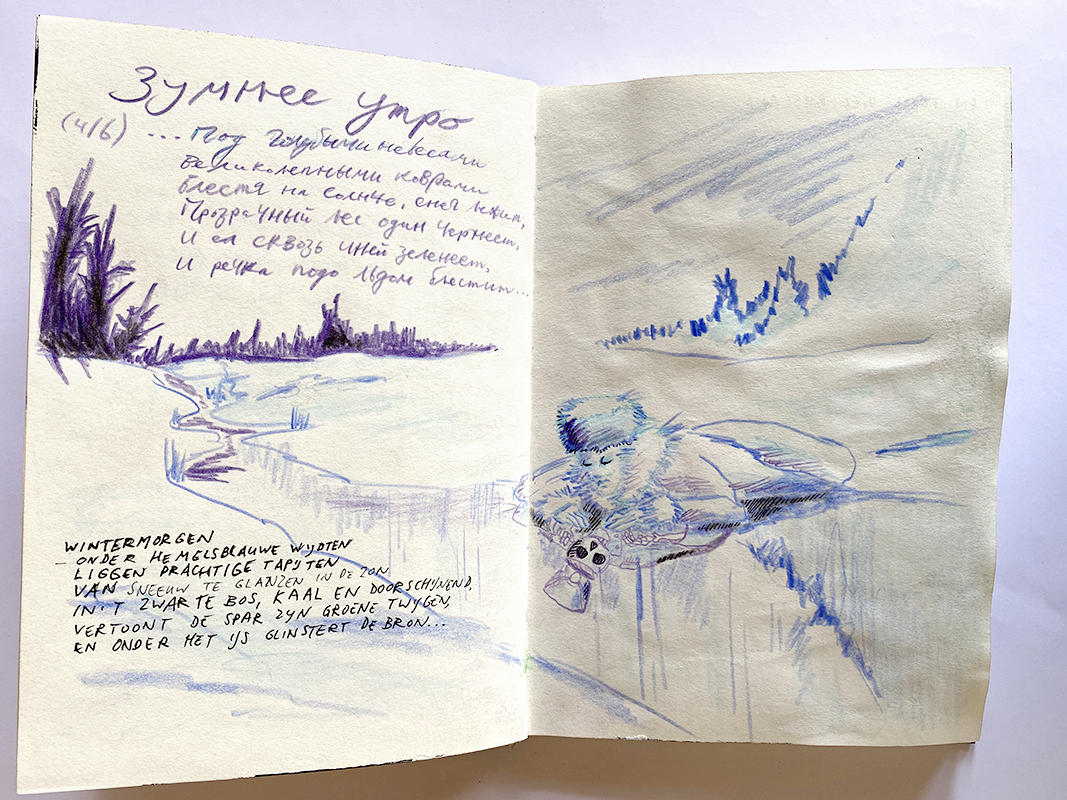 Зимнее утро
(4/6) ... Под голубыми небесами
великолепными коврами
блестя на солнце, снег лежит,
Прозрачный лес один чернеет,
И ель сквозь иней зеленеет,
И речка подо льдом блестит...
WINTERMORGEN
– ONDER HEMELSBLAUWE WIJDTEN
LIGGEN PRACHTIGE TAPIJTEN
VAN SNEEUW TE GLANZEN IN DE ZON
IN'T ZWARTE BOS, KAAL EN DOORSCHIJNEND,
VERTOONT DE SPAR ZIJN GROENE TWIJGEN,
EN ONDER HET IJS GLINSTERT DE BRON...